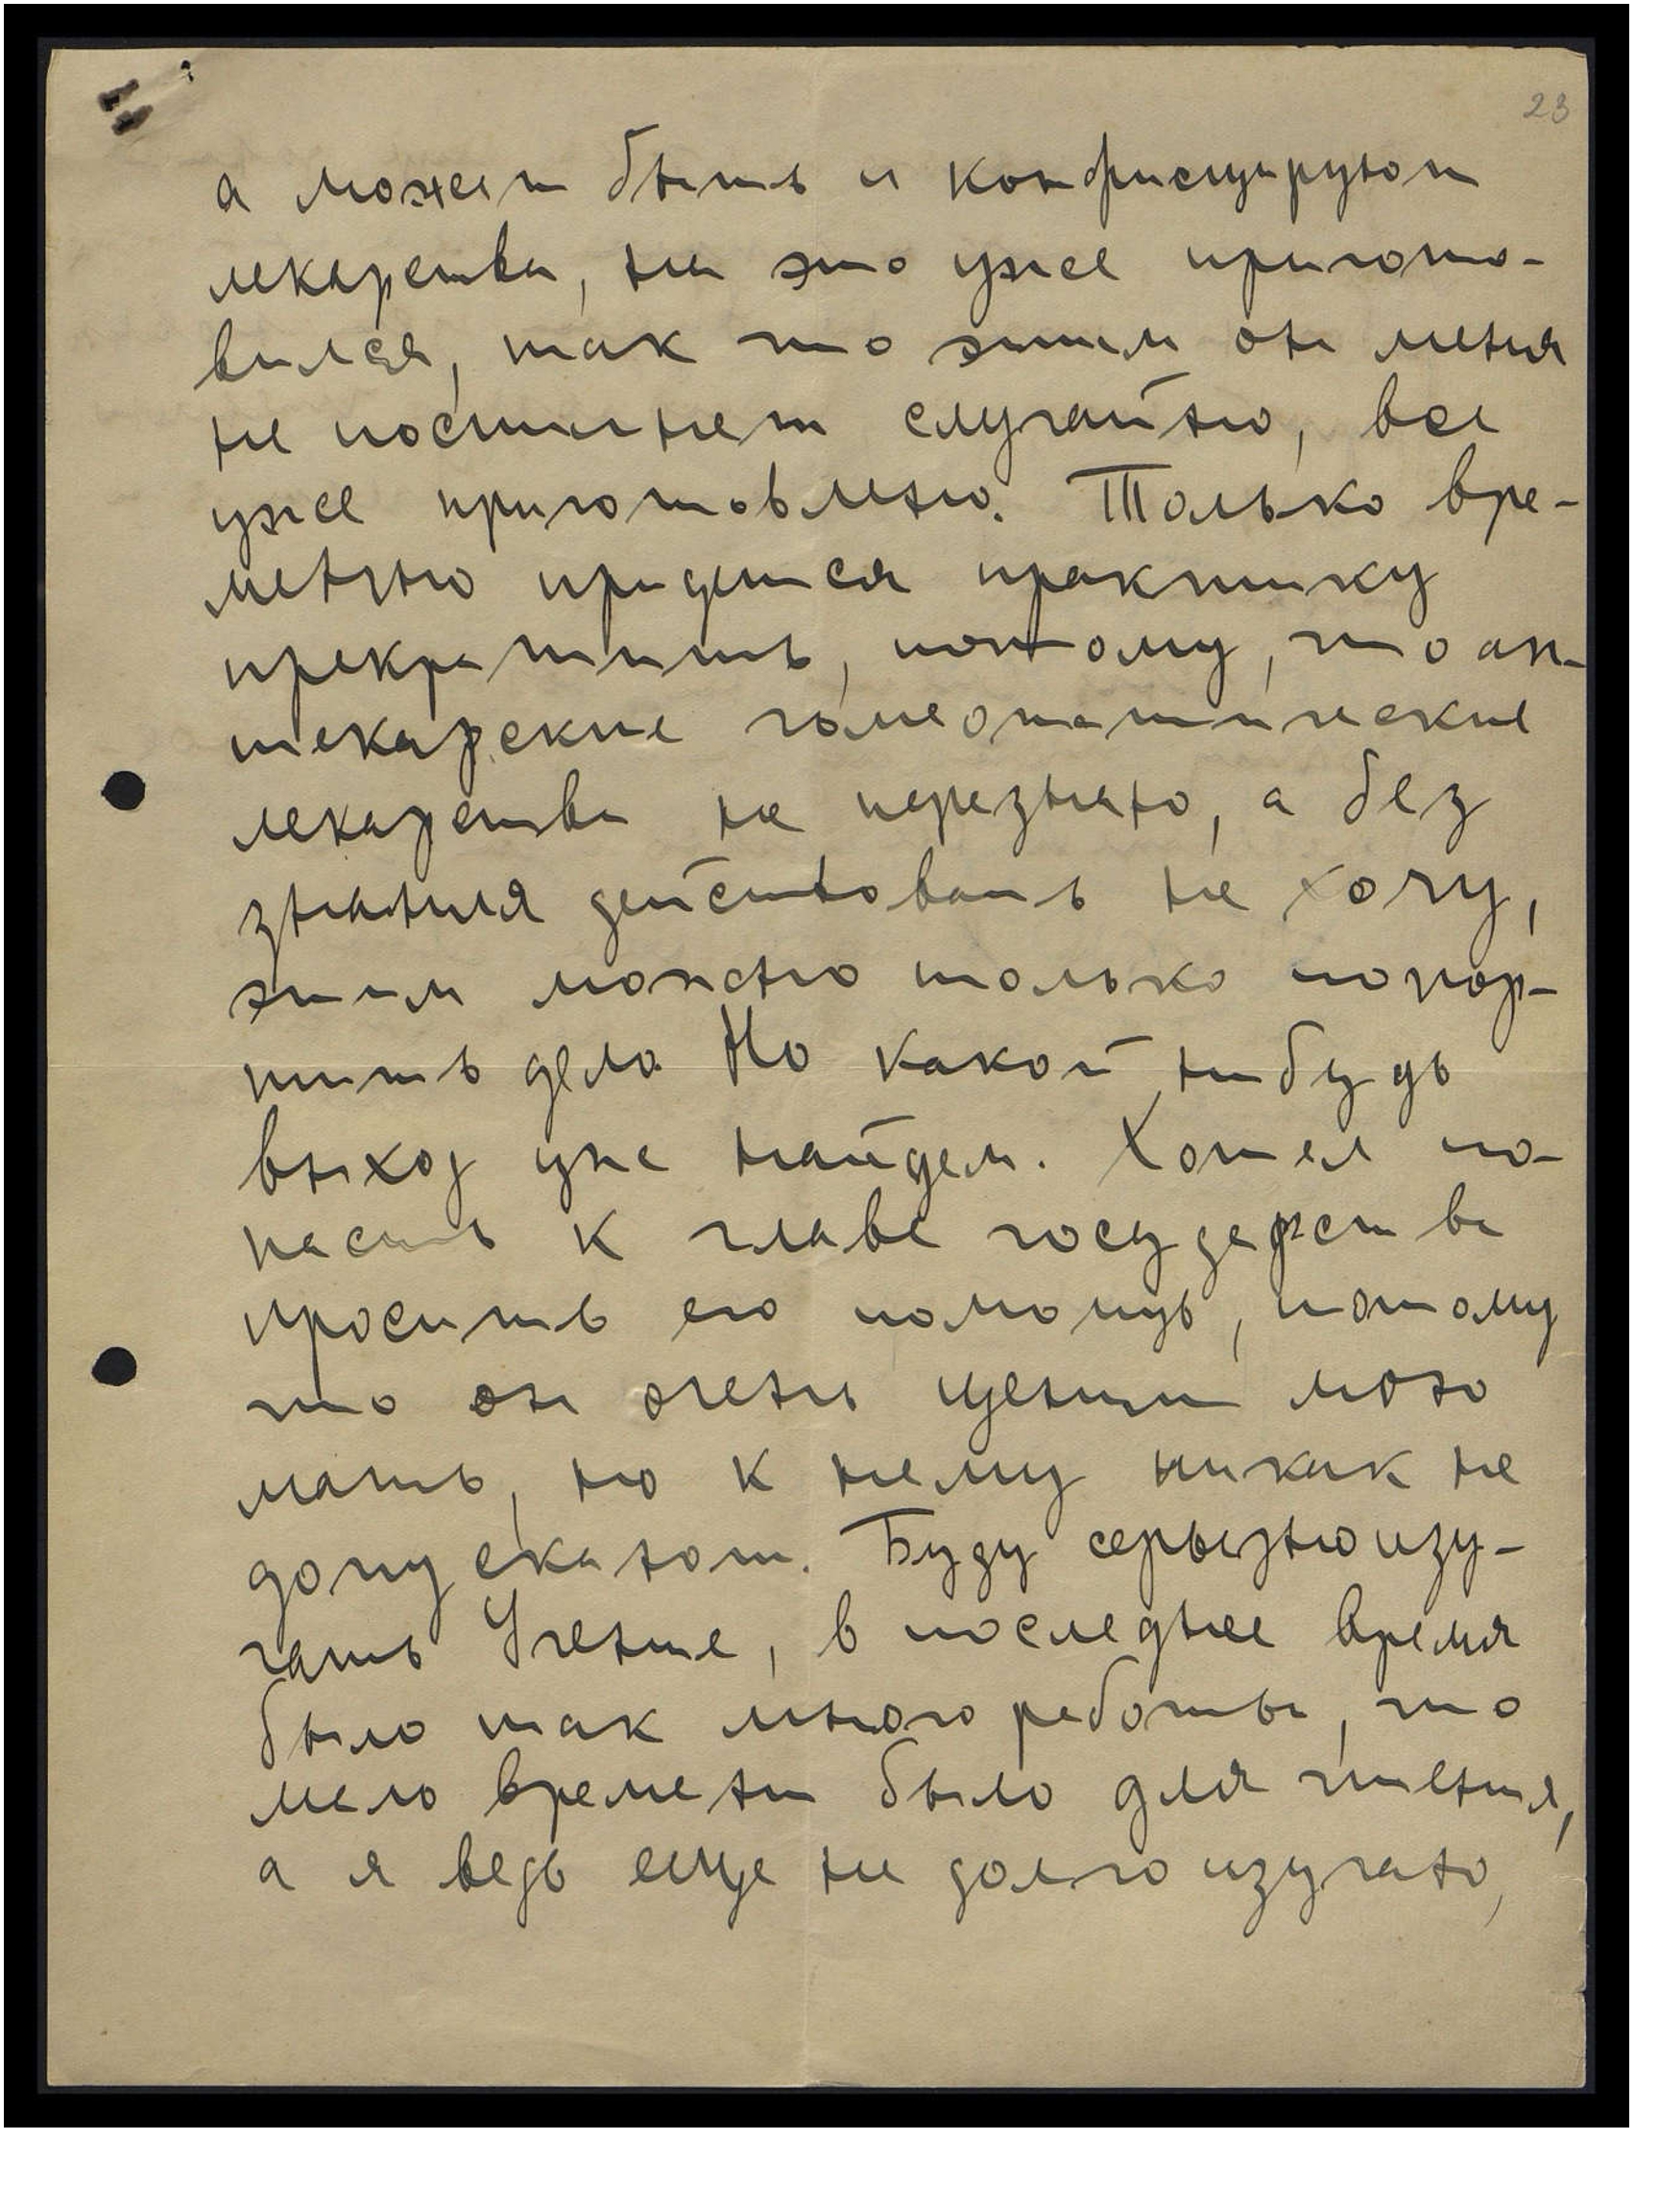 23
а может быть и конфисцируют
лекарства, на это уже пригото-
вился, так что этим он меня
не постигнет случайно, все
уже приготовлено. Только вре-
менно придется практику
прекратить, потому, что ап-
текарские гомеопатические
лекарства не перезнаю, а без
знания действовать не хочу,
этим можно только попор-
тить дела Но какой нибудь
выход уже найдем. Хотел по-
пасть к главе государства
просить его помощь, потому
что он очень ценит мою
мать, но к нему никак не
допускают. Буду серьезно изу-
чать Учение, в последнее время
было так много работы, что
мало времени было для чтения,
а я ведь еще не долго изучаю,